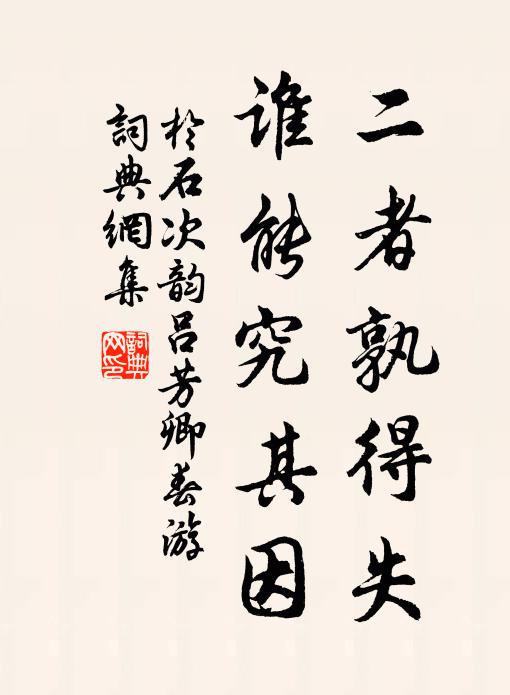 二者孰得失
谁能究其因
於石次韵吕芳卿春游
詞典網集
詞典
网印